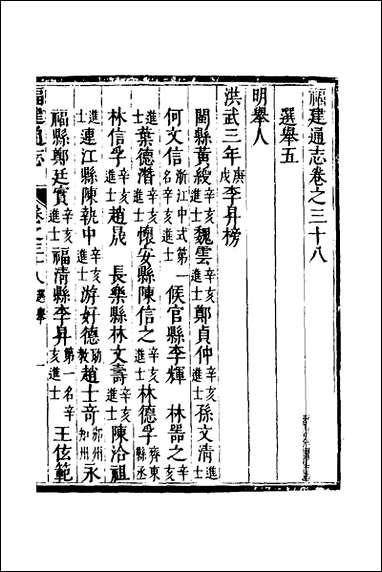 福建通志卷之三十八
選舉五
明舉人
洪武三年庚戌李昇榜
閩縣黃綬辛亥進士魏雲辛亥進士鄭貞仲辛亥進士孫文清進士
何文信浙江中式第一名辛亥進士候官縣李輝　林器之辛亥
進士葉德潛辛亥進士懷安縣陳信之辛亥進士林德孚齊東縣丞
林信孚辛亥進士趙晟　長樂縣林文壽辛亥進士陳洽祖
進士連江縣陳執中辛亥進士游好德助教趙士奇知州永
福縣鄭廷實辛亥進士福清縣李昇第一名辛亥進士　王伭範
福建通志　卷之三十八選舉　一